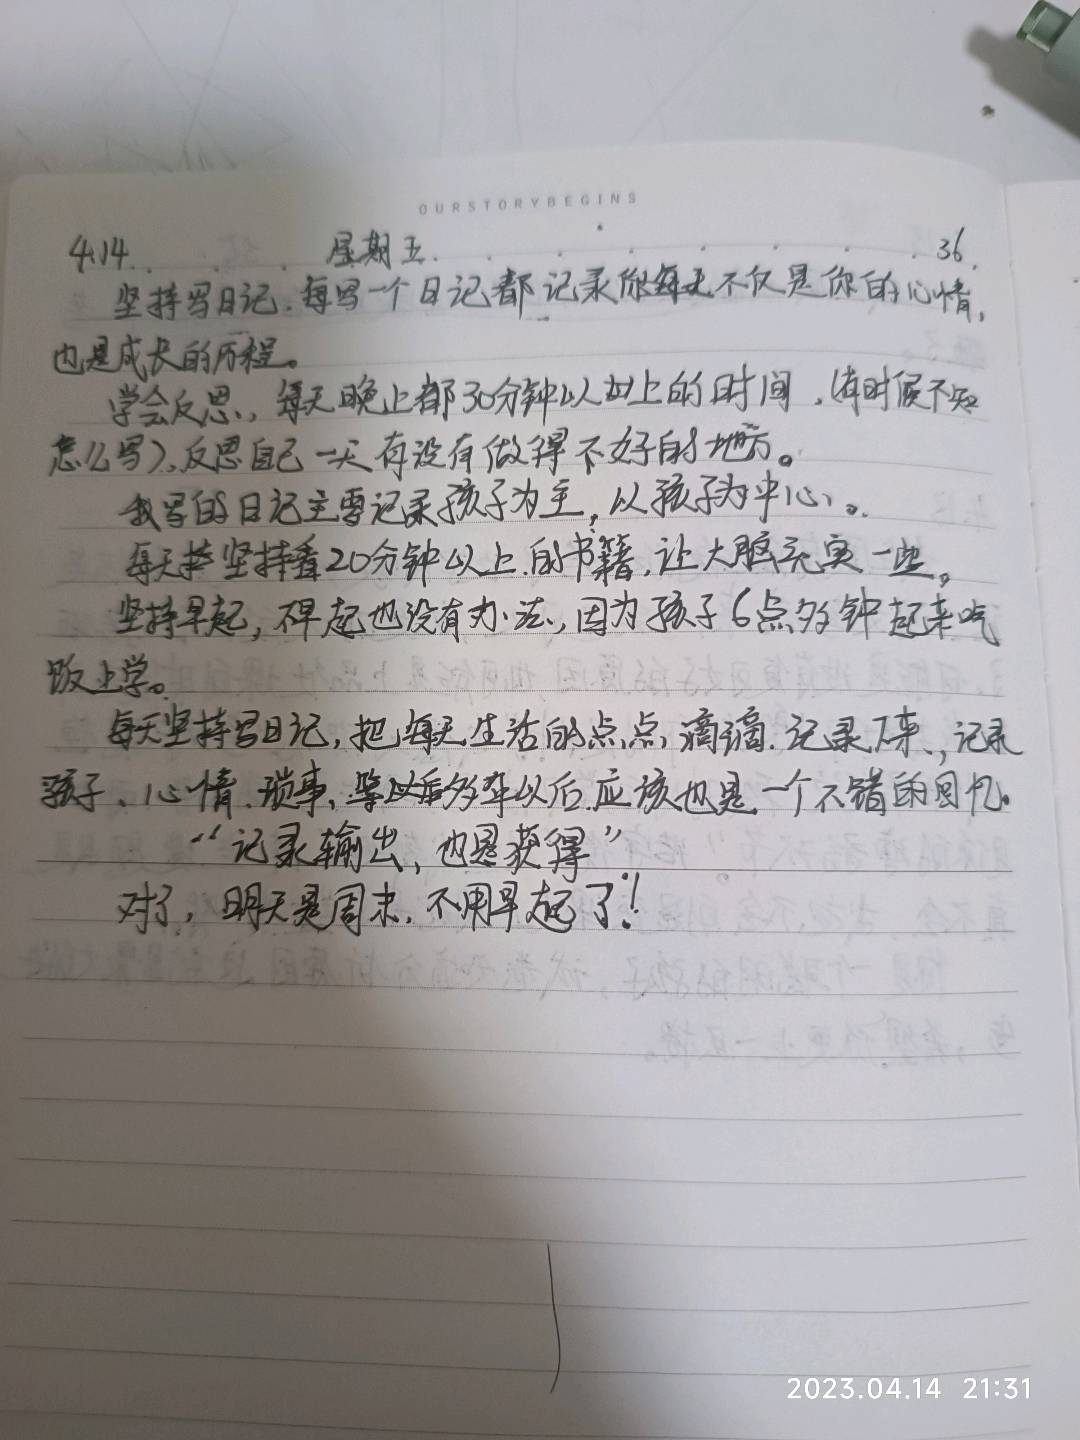 OURSTORYBEGINS
4.14. 星期五. 36.
坚持写日记.每写一个日记都记录你每天不仅是你的心情,
也是成长的历程。
学会反思,每天晚上都30分钟以上的时间,(有时候不知
怎么写)、反思自己一天有没有做得不好的地方。
我写的日记主要记录孩子为主,以孩子为中心。
每天坚持看20分钟以上的书籍.让大脑充实一些。
坚持早起,不早起也没有办法,因为孩子6点多钟起来吃
饭上学。
每天坚持写日记,把每天生活的点点滴滴.记录下来,记录
孩子、心情.琐事、等以后多年以后.应该也是一个不错的回忆.
“记录输出,也是获得”
对了,明天是周末.不用早起了!
2023.04.14 21:31